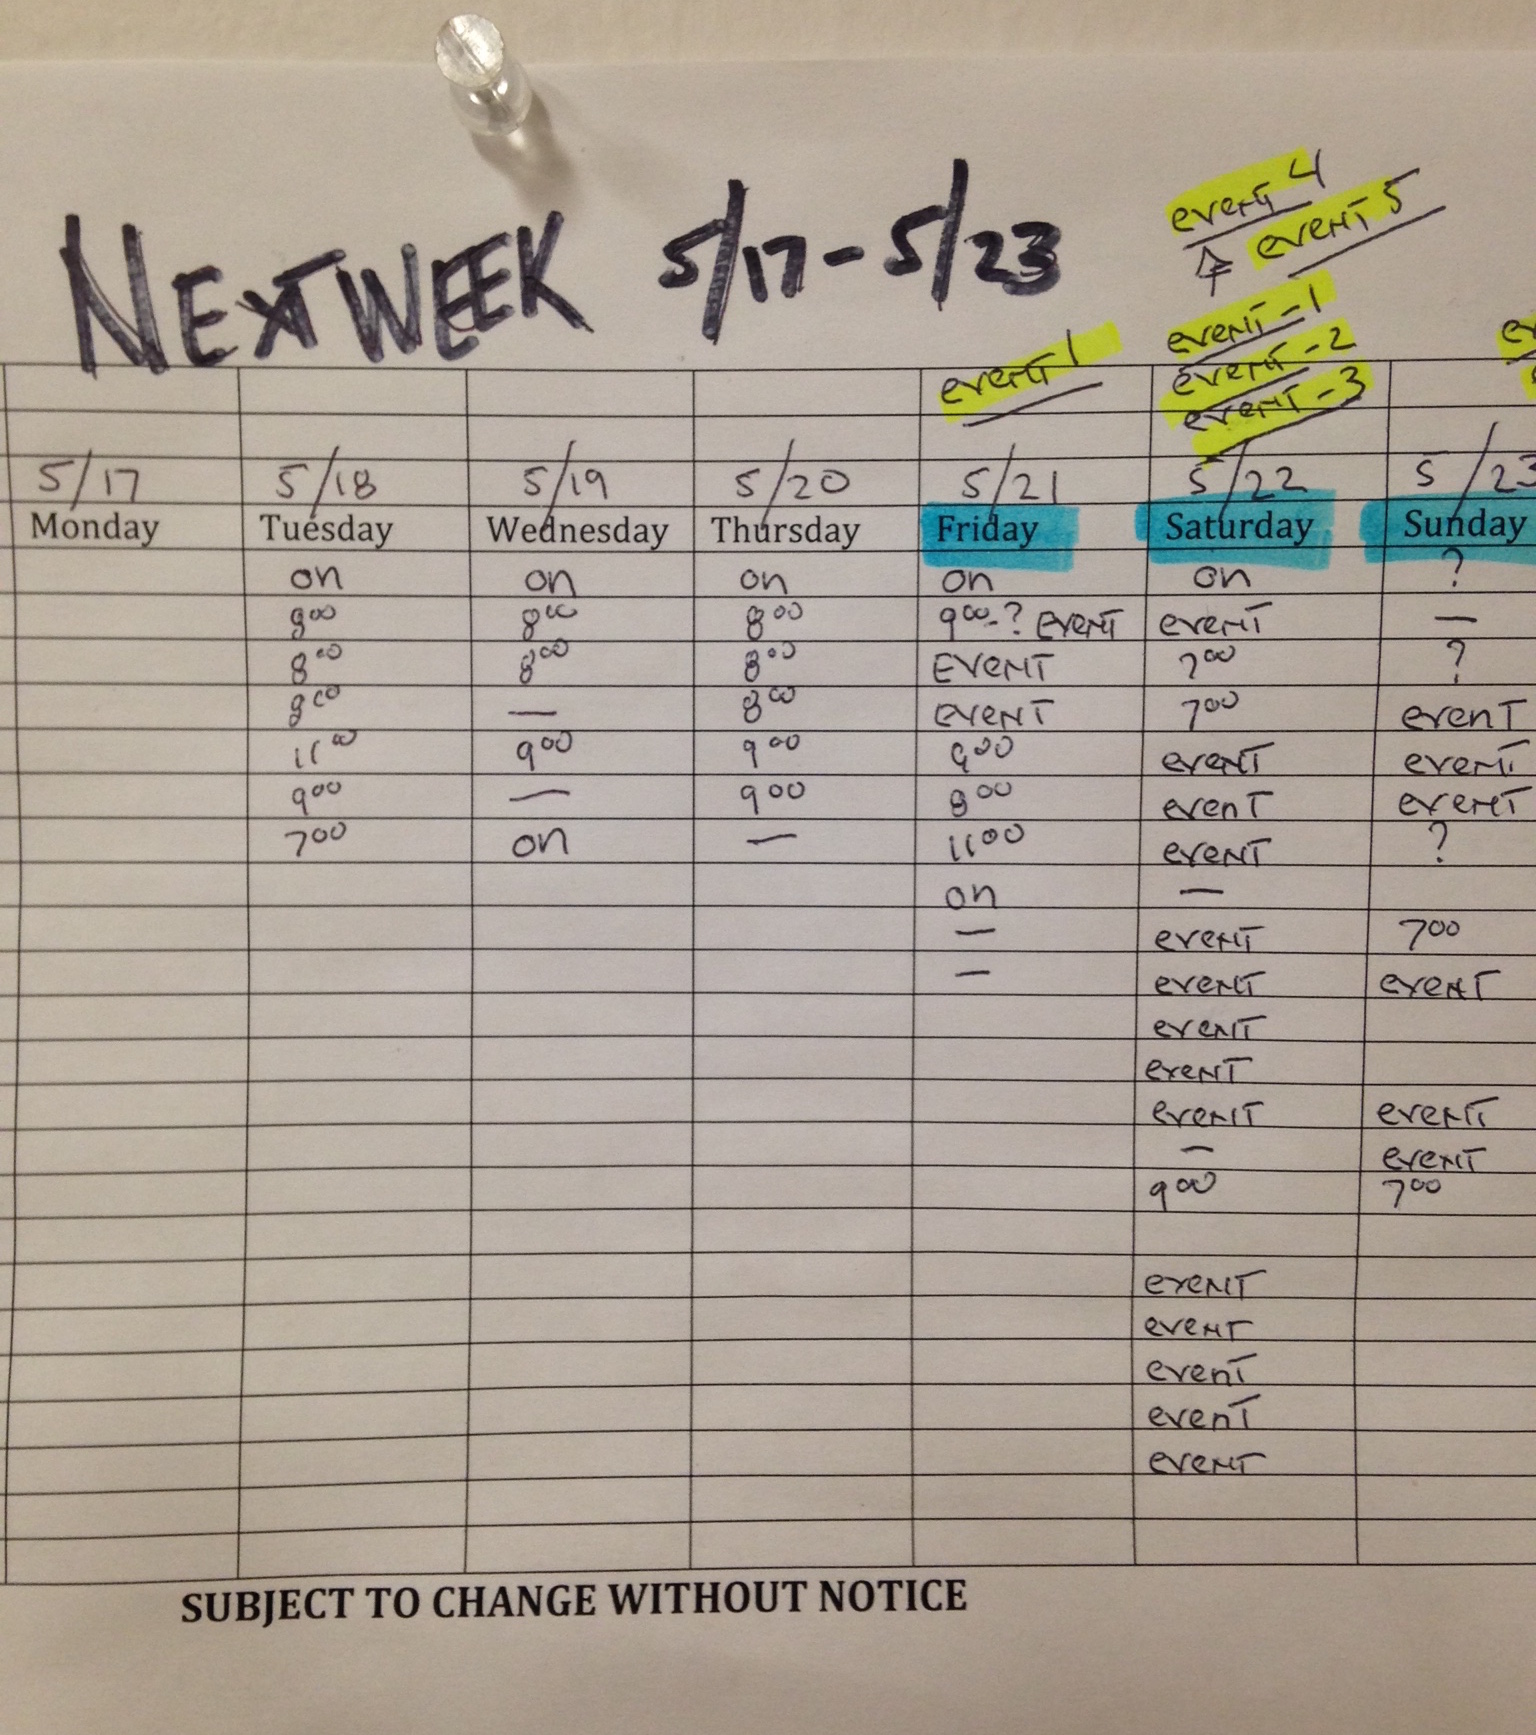 event 4
event 5
NEXT WEEK 5/17 - 5/23
event-1
event 1 event-2
event-3
5/17 5/18 5/19 5/20 5/21 5/22 5/23
Monday Tuesday Wednesday Thursday Friday Saturday Sunday
on on on on on ?
8⁰⁰ 8⁰⁰ 9⁰⁰-? EVENT EVENT —
8⁰⁰ 8⁰⁰ 8⁰⁰ EVENT 7⁰⁰ ?
— 8⁰⁰ EVENT 7⁰⁰ evenT
11⁰⁰ 9⁰⁰ 9⁰⁰ 9⁰⁰ eveNT eveNT
9⁰⁰ — 9⁰⁰ 8⁰⁰ evenT eveNT
7⁰⁰ on — 11⁰⁰ eveNT ?
on —
— eveNT 7⁰⁰
— eveNT eveNT
eveNT
eveNT
eveNT eveNT
— eveNT
9⁰⁰ 7⁰⁰
eveNT
eveNT
evenT
evenT
eveNT
SUBJECT TO CHANGE WITHOUT NOTICE